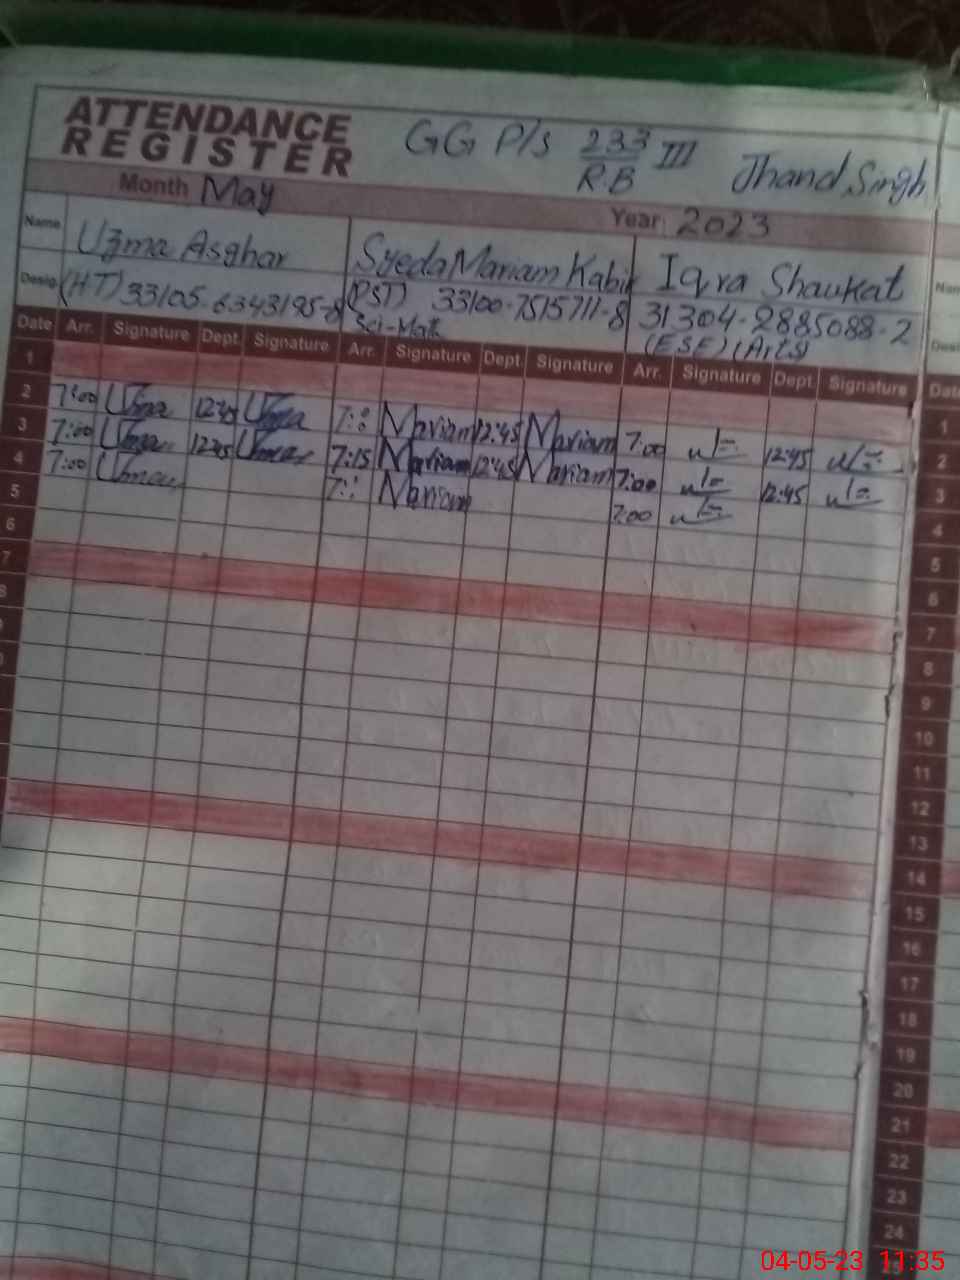 ATTENDANCE
REGISTER
GG P/S 233/R.B III Jhand Singh
Month May
Year: 2023
Name Uzma Asghar Syeda Mariam Kabir Iqra Shaukat
Desig (HT) 33105-6343195-8 (PST) 33100-7515711-8 31304-2885088-2
Sci-Math (ESE) (Arts)
Date Arr. Signature Dept. Signature Arr. Signature Dept. Signature Arr. Signature Dept. Signature Date
1 1
2 7:00 Uzma 12:45 Uzma Mariam 12:45 Mariam 7:00 12:45 2
3 7:00 Uzma 12:45 Uzma 7:15 Mariam 12:45 Mariam 7:00 12:45 3
4 7:00 Uzma Mariam 7:00 4
5 5
6 6
7 7
8 8
9
10
11
12
13
14
15
16
17
18
19
20
21
22
23
24
04-05-23 11:35